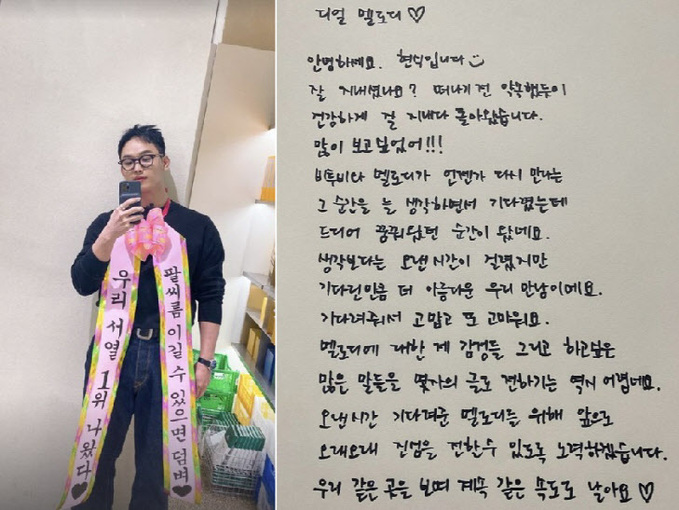 우리 서열 1위 나왔다♥
팔씨름 이길 수 있으면 덤벼♥
디얼 멜로디♡
안녕하세요. 현식입니다
잘 지내셨나요? 떠나기 전 약속했듯이
건강하게 잘 지내다 돌아왔습니다.
많이 보고싶었어!!!
비투비와 멜로디가 언젠가 다시 만나는
그 순간을 늘 생각하면서 기다렸는데
드디어 꿈꿔왔던 순간이 왔네요.
생각보다는 오랜시간이 걸렸지만
기다린만큼 더 아름다운 우리 만남이에요.
기다려줘서 고맙고 또 고마워요.
멜로디에 대한 제 감정들 그리고 하고싶은
많은 말들을 몇자의 글로 전하기는 역시 어렵네요.
오랜시간 기다려준 멜로디를 위해 앞으로
오래오래 진심을 전할수 있도록 노력하겠습니다.
우리 같은 곳을 보며 계속 같은 속도로 날아요♡